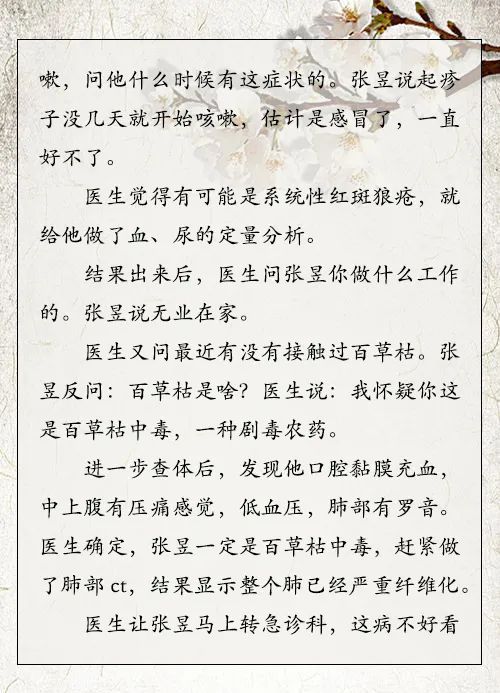 嗽，问他什么时候有这症状的。张昱说起疹
子没几天就开始咳嗽，估计是感冒了，一直
好不了。
医生觉得有可能是系统性红斑狼疮，就
给他做了血、尿的定量分析。
结果出来后，医生问张昱你做什么工作
的。张昱说无业在家。
医生又问最近有没有接触过百草枯。张
昱反问：百草枯是啥？医生说：我怀疑你这
是百草枯中毒，一种剧毒农药。
进一步查体后，发现他口腔黏膜充血，
中上腹有压痛感觉，低血压，肺部有罗音。
医生确定，张昱一定是百草枯中毒，赶紧做
了肺部 ct，结果显示整个肺已经严重纤维化。
医生让张昱马上转急诊科，这病不好看